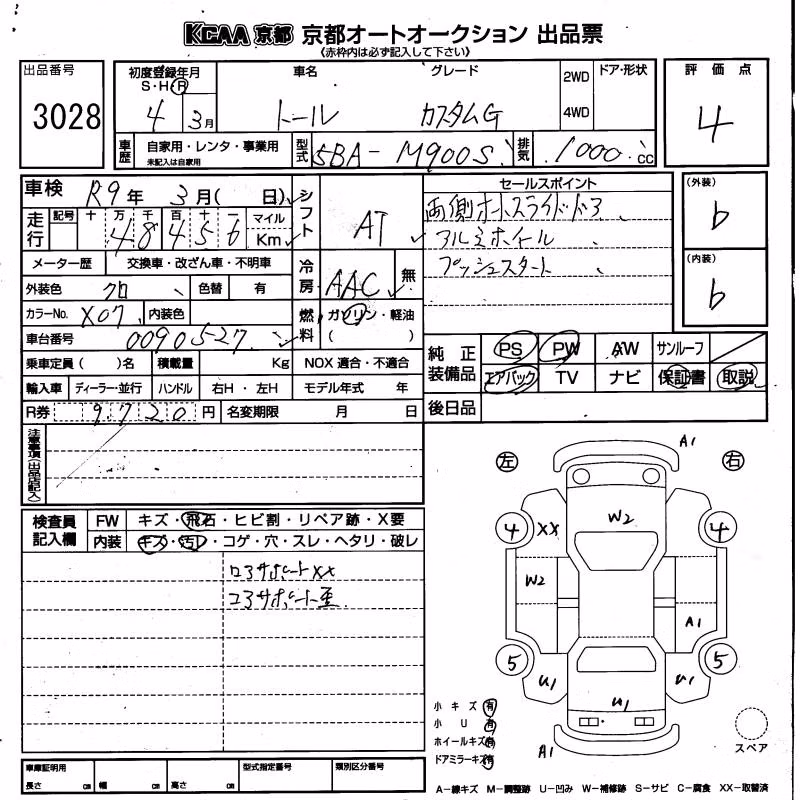 KCAA 京都 京都オートオークション 出品票
《赤枠内は必ず記入して下さい》
出品番号
3028
初度登録年月
S・H・R
4 3月
車名
トール
グレード
カスタムG
2WD
4WD
ドア・形状
評価点
4
車歴
自家用・レンタ・事業用
未記入は自家用
型式
5BA-M900S
排気
1000 cc
車検 R9年 3月( 日)
走行
記号 十 万 千 百 十 一
4 8 4 5 6
マイル
Km
メーター歴 交換車・改ざん車・不明車
外装色 クロ 色替 有
カラーNo. X07 内装色
車台番号 0090527
乗車定員( )名 積載量 Kg NOX 適合・不適合
輸入車 ディーラー・並行 ハンドル 右H・左H モデル年式 年
R券 9720円 名変期限 月 日
シフト AT
冷房 AAC 無
燃料 ガソリン・軽油
( )
セールスポイント
両側オートスライドドア
アルミホイール
プッシュスタート
(外装)
b
(内装)
b
純正装備品
PS PW AW サンルーフ
エアバック TV ナビ 保証書 取説
後日品
注意事項(出品店記入)
検査員記入欄
FW キズ・飛石・ヒビ割・リペア跡・X要
内装 キズ・汚レ・コゲ・穴・スレ・ヘタリ・破レ
コアサポートXX
コアサポート歪
左 右
A1
4 XX W2 4
W2
A1
5 U1 U1 U1 5
A1
小キズ 有
小U 有
ホイールキズ 有
ドアミラーキズ 有
スペア
車庫証明用
長さ cm 幅 cm 高さ cm
型式指定番号
類別区分番号
A-線キズ M-調整跡 U-凹み W-補修跡 S-サビ C-腐食 XX-取替済